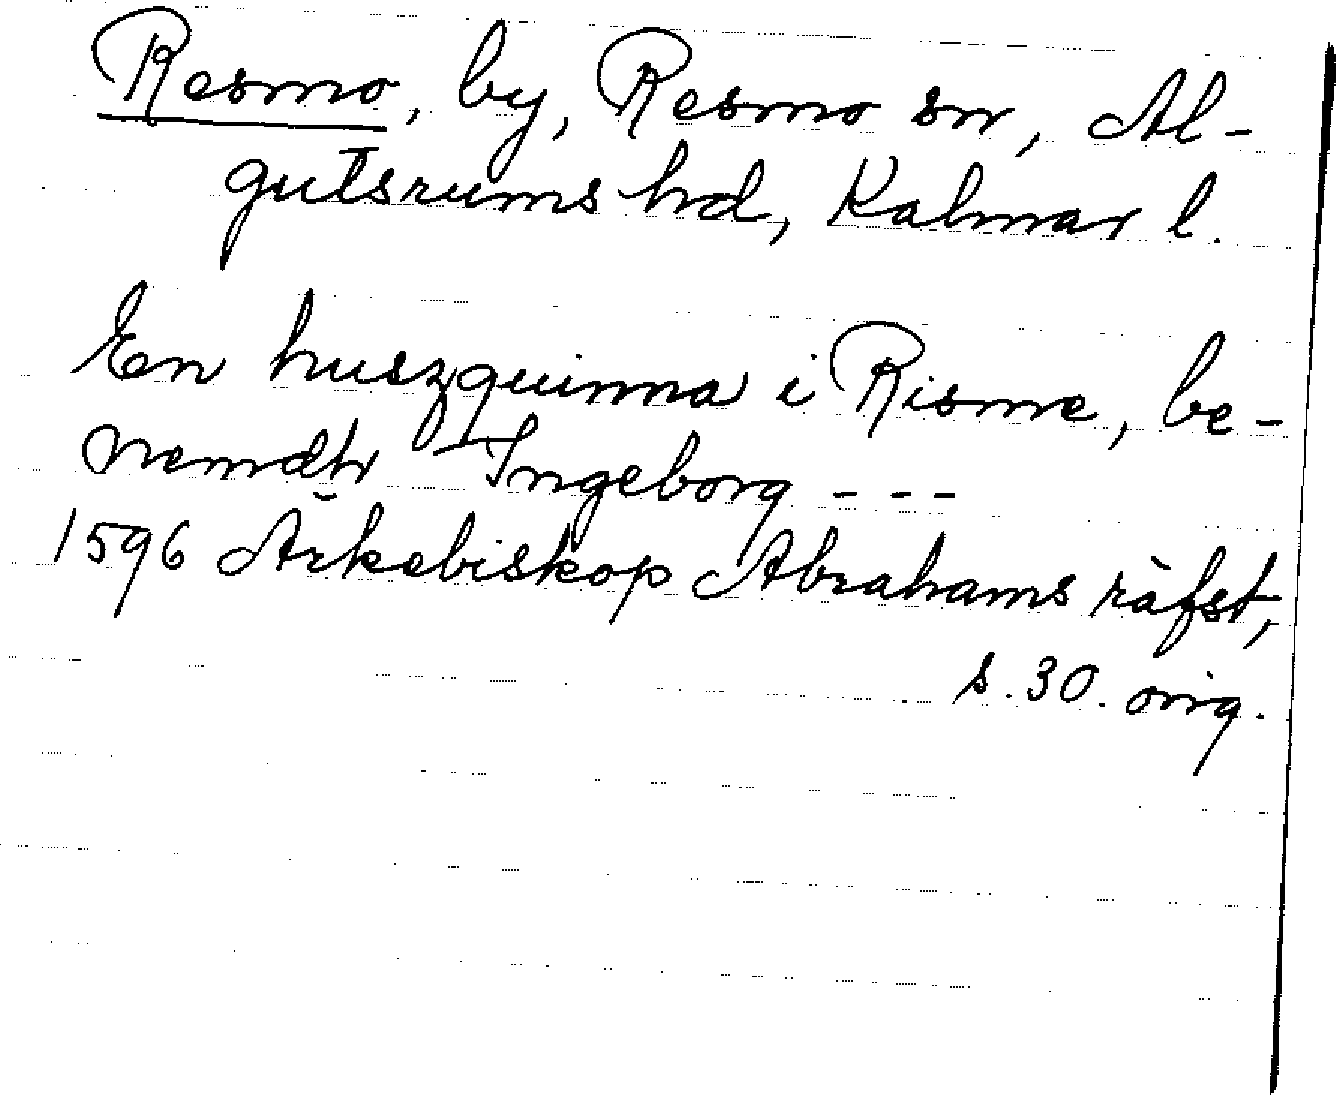 Resmo, by, Resmo sn, Al-
gutsrums hd, Kalmar l.
En huszquinna i Risme, be-
nemdh Ingeborg - - -
1596 Ärkebiskop Abrahams räfst,
s. 30. orig.